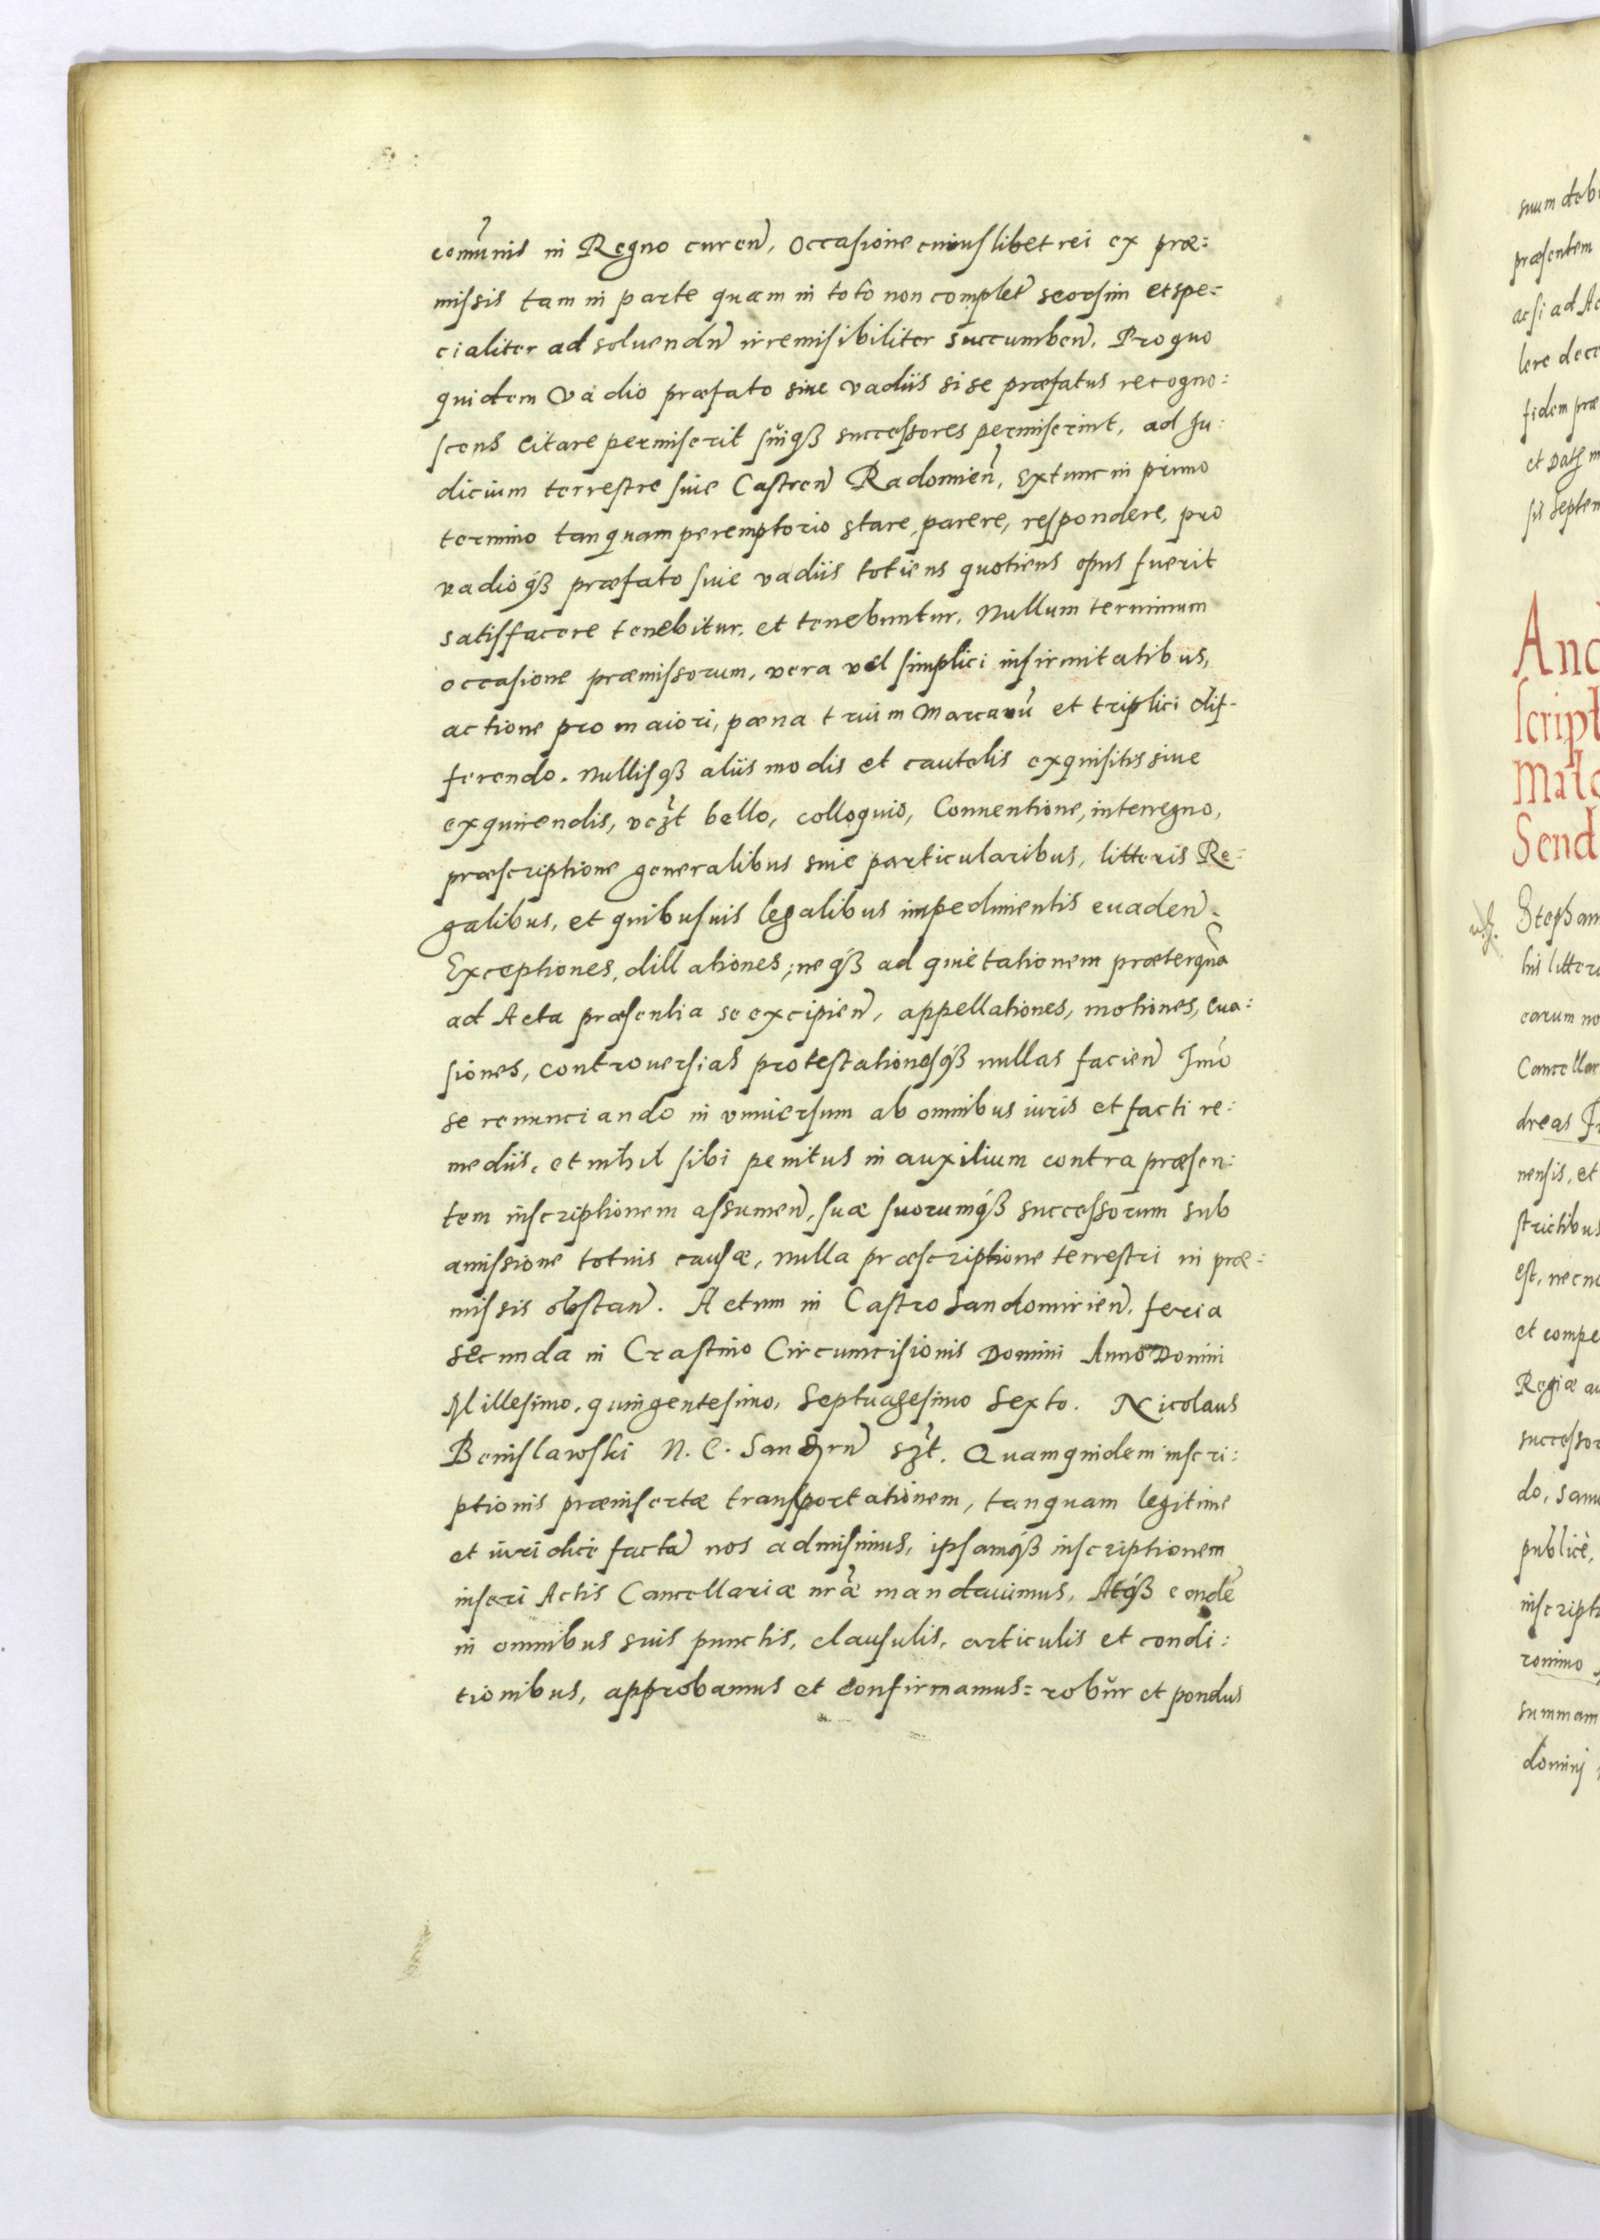 com̃unis in Regno curen̄, occasione cuiuslibet rei ex præ:
missis tam in parte quam in toto non complet̄ seorsim et spe:
cialiter ad soluendū irremisibiliter succumben̄. Pro quo
quidem vadio præfato siue vadiis si se præfatus recogno:
scens citare permiserit suiqꜧ successores permiserint, ad Ju:
dicium terrestre siue Castren̄ Radomien̄, extunc in primo
termino tanquam peremptorio stare, parere, respondere, pro
vadioqꜧ præfato siue vadiis totiens quotiens opus fuerit
satisfacere tenebitur, et tenebuntur. Nullum terminum
occasione præmissorum, vera vel simplici infirmitatibus,
actione pro maiori, pœna trium Marcarū et triplici dif-
ferendo. Nullisqꜧ aliis modis et cautelis exquisitis siue
exquirendis, vcꝫt bello, colloquio, Conuentione, interregno,
præscriptione generalibus siue particularibus, litteris Re:
galibus, et quibusuis legalibus impedimentis euaden̄.
Exceptiones, dillationes, neqꜧ ad quietationem præterquā
ad Acta præsentia se excipien̄, appellationes, motiones, eua:
siones, controuersias protestationesqꜧ nullas facien̄ Jmo
se renunciando in vniuersum ab omnibus iuris et facti re:
mediis, et nihil sibi penitus in auxilium contra præsen:
tem inscriptionem assumen̄, suæ suorumqꜧ successorum sub
amissione totius causæ, nulla præscriptione terrestri in præ:
missis obstan̄. Actum in Castro Sandomirien̄. feria
secunda in Crastino Circumcisionis Domini Anno Domini
Millesimo, quingentesimo, Septuagesimo Sexto. Nicolaus
Benislawski N. C. Sandrn̄ sꝫt. Quamquidem inscri:
ptionis præinsertæ transportationem, tanquam legitime
et iuridice factā nos admisimus, ipsamqꜧ inscriptionem
inseri Actis Cancellariæ nrãe mandauimus, Atqꜧ eandē
in omnibus suis punctis, clausulis, articulis et condi:
tionibus, approbamus et confirmamus: robur et pondus
suum deb
præsentem
ac si ad Ac
lere dece
fidem præ
et Dat m
sis septem
And
script
Male
Send
Stephan
his litter
earum no
Cancellar
dreas
nensis, et
strictibus
est, necno
et compe
Regiæ au
successor
do, sanu
publicè,
inscripti
ronimo
summam
dominj